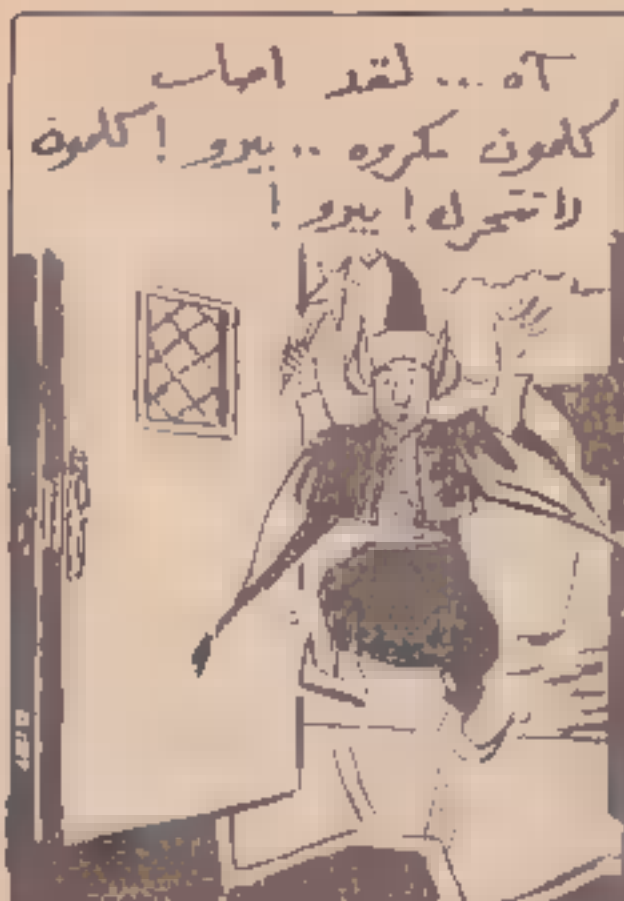 آه ... لقد اصاب
كلمون مكروه .. بيدو ! كلمون
لا تتحرك ! بيدو !